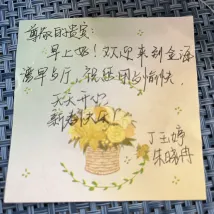 尊敬的贵宾
早上好！欢迎来到金海
湾早与厅，祝您用与愉快，
天天开心
新年快乐！
丁玉婷
朱晓冉